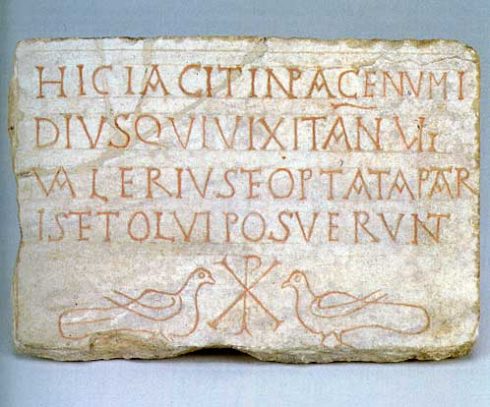 HICIACITINPACENVMI
DIVSQVIVIXITANVI
VALERIVSEOPTATAPAR
ISETOLVIPOSVERVNT